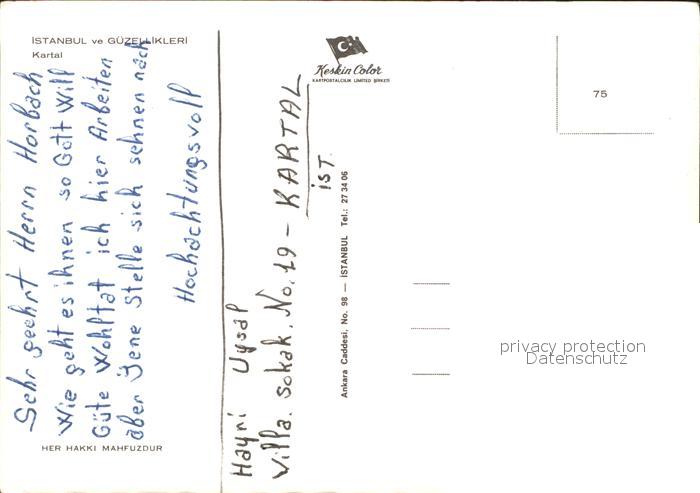 İSTANBUL ve GÜZELLİKLERİ
Kartal
Sehr geehrt Herrn Horbach
Wie geht es ihnen so Gott Will
Güte Wohltat ich hier Arbeiten
aber Jene Stelle sich sehnen nach
Hochachtungsvoll
HER HAKKI MAHFUZDUR
Hayri Uysal
Villa. Sokak. No. 19 - KARTAL
İST.
Keskin Color
KARTPOSTALCILIK LIMITED ŞİRKETİ
Ankara Caddesi, No. 98 — İSTANBUL Tel.: 27 34 06
75
privacy protection
Datenschutz